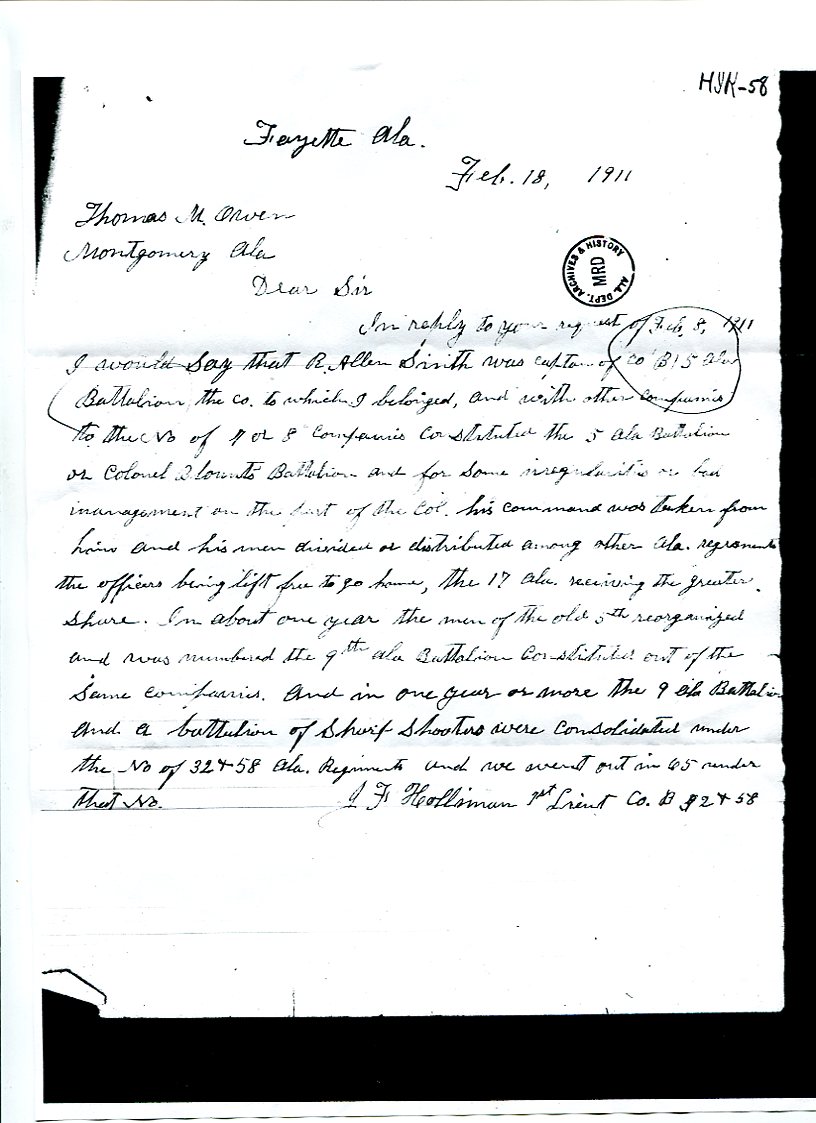 HIR-58
Fayette Ala.
Feb. 18, 1911
Thomas M. Owen
Montgomery Ala
ALA. DEPT. ARCHIVES & HISTORY
MRD
Dear Sir
In reply to your request of Feb, 8, 1911
I would say that R. Allen Smith was captain of Co B 5 Ala
Battalion, the co. to which I belonged, and with other companies
to the No of 7 or 8 companies constituted the 5 Ala Battalion
or Colonel Blounts Battalion and for some irregularities or bad
management on the part of the Col. his command was taken from
him and his men divided or distributed among other Ala. regiments
the officers being lift free to go home, the 17 Ala. reciving the greater
share. In about one year the men of the old 5th reorganized
and was numbered the 9th Ala Battalion Constituted out of the
same companies. And in one year or more the 9 Ala Battalion
and a battalion of Sharp Shooters were consolidated under
the No of 32 & 58 Ala. Regiments and we went out in 65 under
that No. J F Hollsman 1st Lieut Co. B 32 & 58